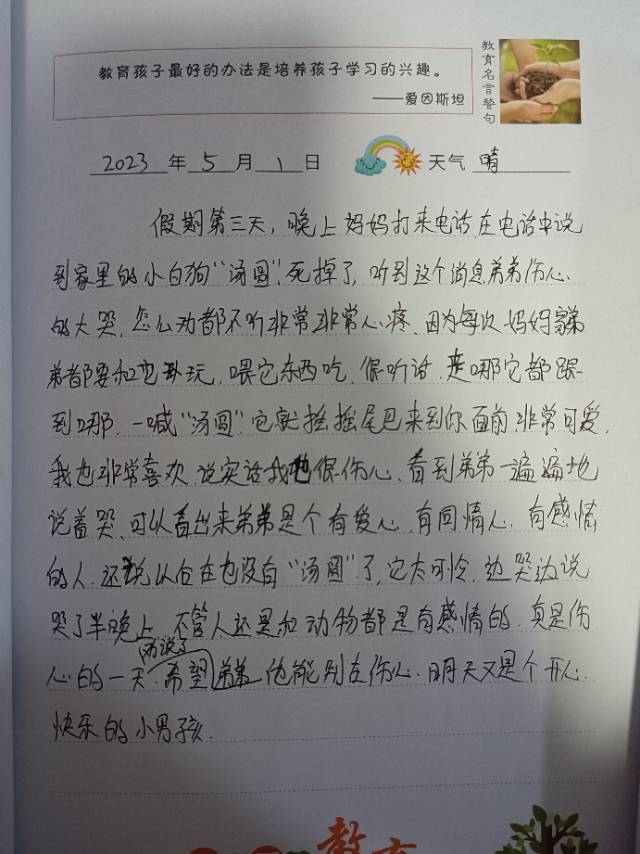 教育孩子最好的办法是培养孩子学习的兴趣。
——爱因斯坦
教育名言警句
2023年5月1日 天气 晴
假期第三天，晚上妈妈打来电话，在电话中说
到家里的小白狗“汤圆”死掉了，听到这个消息弟弟伤心
的大哭，怎么劝都不听非常非常心疼，因为每次妈妈
弟都要和它玩，喂它东西吃，很听话，走哪它都跟
到哪，一喊“汤圆”它就摇摇尾巴来到你面前非常可爱，
我也非常喜欢，说实话我也很伤心，看到弟弟一遍遍地
说着哭，可以看出来弟弟是个有爱心，有同情心，有感情
的人，还说以后在也没有“汤圆”了，它太可怜，边哭边说
哭了半晚上，不管人还是和动物都是有感情的，真是伤
心的一天，希望弟弟他能别在伤心，明天又是个开心
快乐的小男孩。
教育